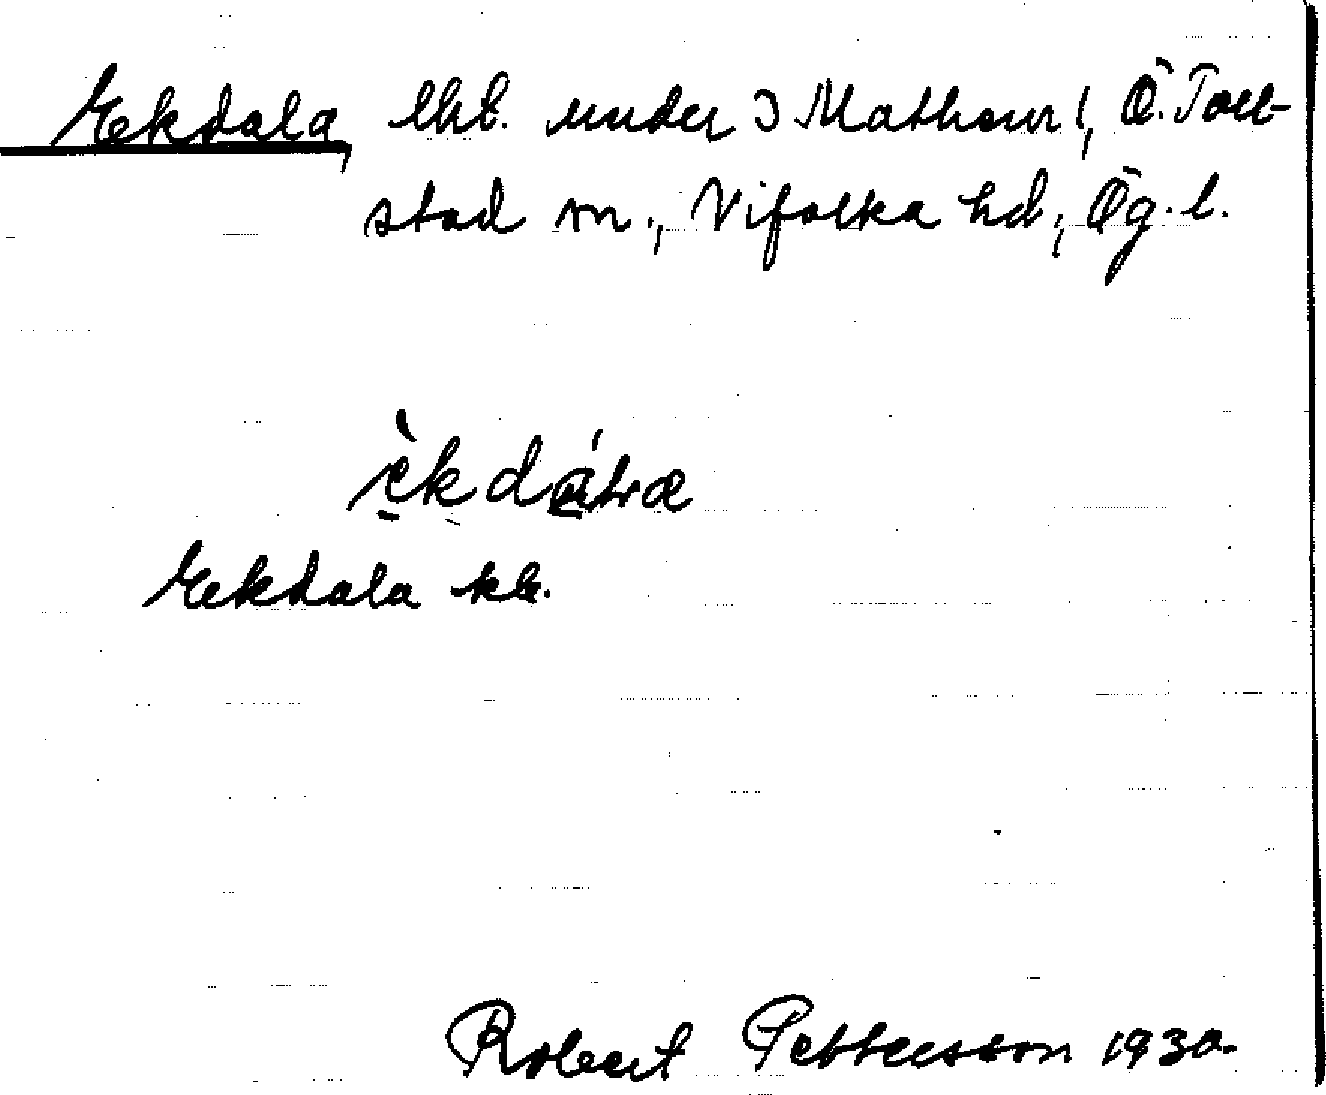 Ekdala, lht. under Mathem, Ö. Toll-
stad sn., Vifolka hd, Ög. l.
Ekdala kb.
Robert Pettersson 1930.